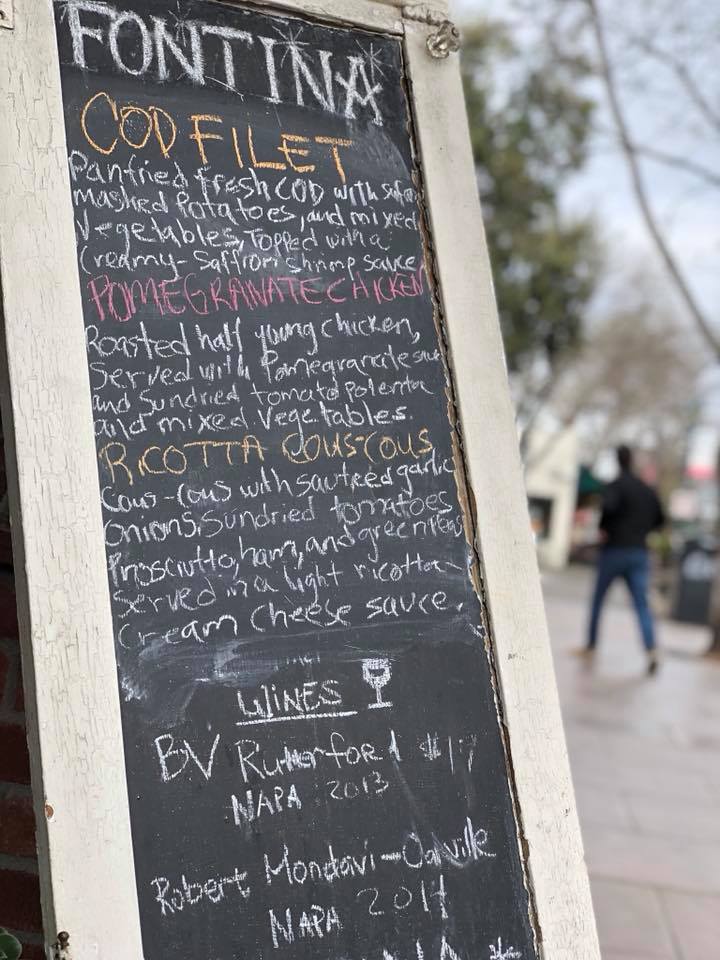 FONTINA
COD FILET
Panfried fresh COD with
mashed Potatoes, and mixed
Vegetables, Topped with a
Creamy-Saffron shrimp sauce
POMEGRANATE CHICKEN
Roasted half young chicken,
Served with Pomegranate
and Sundried tomato Polenta
and mixed Vegetables.
RICOTTA COUSCOUS
Cous-Cous with sauteed garlic
onions, sundried tomatoes
Prosciutto, ham, and green peas
Served in a light ricotta-
Cream cheese sauce.
WINES
BV Rutherford $17
NAPA 2013
Robert Mondavi-Oakville
NAPA 2014